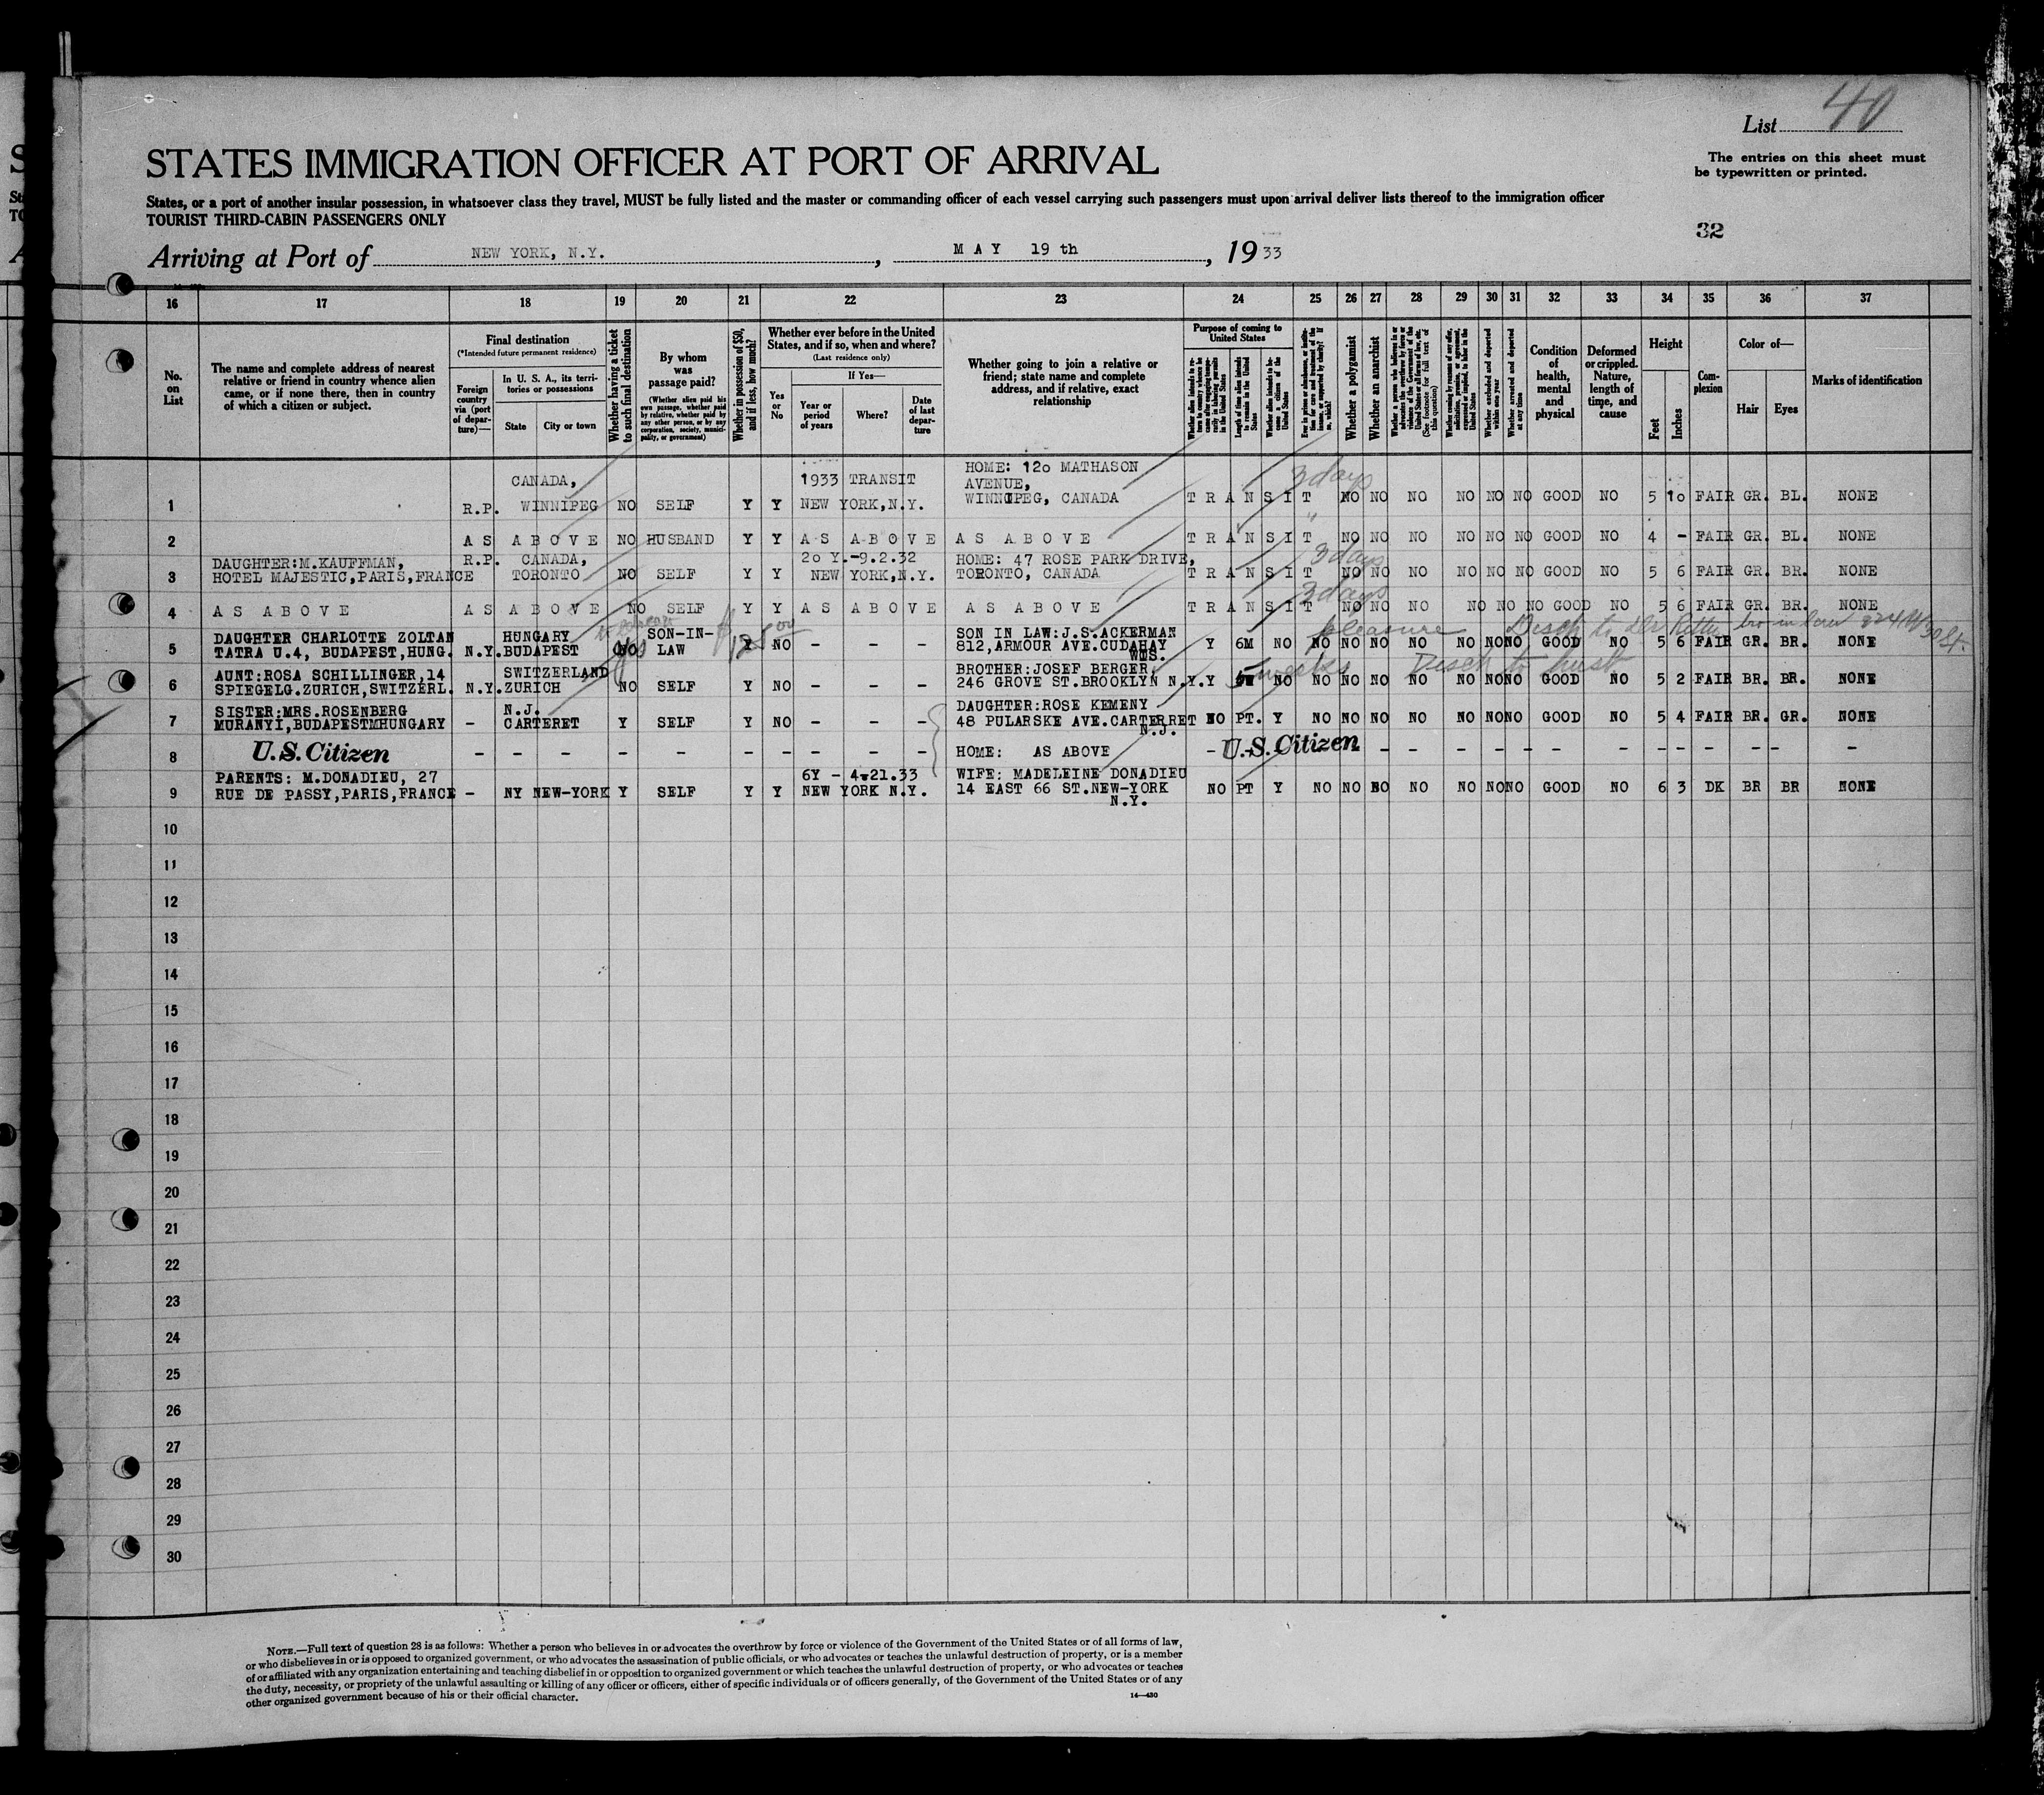 List 40
STATES IMMIGRATION OFFICER AT PORT OF ARRIVAL
The entries on this sheet must
be typewritten or printed.
States, or a port of another insular possession, in whatsoever class they travel, MUST be fully listed and the master or commanding officer of each vessel carrying such passengers must upon arrival deliver lists thereof to the immigration officer
TOURIST THIRD-CABIN PASSENGERS ONLY
32
Arriving at Port of NEW YORK, N.Y. , MAY 19 th , 1933
16 17 18 19 20 21 22 23 24 25 26 27 28 29 30 31 32 33 34 35 36 37
No. on List
The name and complete address of nearest relative or friend in country whence alien came, or if none there, then in country of which a citizen or subject.
Final destination
(*Intended future permanent residence)
Foreign country via (port of departure)—
In U. S. A., its territories or possessions
State
City or town
Whether having a ticket to such final destination
By whom was passage paid?
(Whether alien paid his own passage, whether paid by relative, whether paid by any other person, or by any corporation, society, municipality, or government)
Whether in possession of $50, and if less, how much?
Whether ever before in the United States, and if so, when and where?
(Last residence only)
Yes or No
If Yes—
Year or period of years
Where?
Date of last departure
Whether going to join a relative or friend; state name and complete address, and if relative, exact relationship
Purpose of coming to United States
Length of time alien intends to remain in the United States
Whether alien intends to become a citizen of the United States
Whether a polygamist
Whether an anarchist
(See footnote for full text of this question)
Whether excluded and deported within one year
Whether arrested and deported at any time
Condition of health, mental and physical
Deformed or crippled. Nature, length of time, and cause
Height
Feet
Inches
Complexion
Color of—
Hair
Eyes
Marks of identification
HOME: 12o MATHASON
CANADA, 1933 TRANSIT AVENUE, 3 days
1 R.P. WINNIPEG NO SELF Y Y NEW YORK,N.Y. WINNIPEG, CANADA TRANSIT NO NO NO NO NO NO GOOD NO 5 1o FAIR GR. BL. NONE
2 AS ABOVE NO HUSBAND Y Y AS ABOVE AS ABOVE TRANSIT " NO NO NO NO NO NO GOOD NO 4 - FAIR GR. BL. NONE
DAUGHTER:M.KAUFFMAN, R.P. CANADA, 2o Y.-9.2.32 HOME: 47 ROSE PARK DRIVE, 3 days
3 HOTEL MAJESTIC,PARIS,FRANCE TORONTO NO SELF Y Y NEW YORK,N.Y. TORONTO, CANADA TRANSIT NO NO NO NO NO NO GOOD NO 5 6 FAIR GR. BR. NONE
4 AS ABOVE AS ABOVE NO SELF Y Y AS ABOVE AS ABOVE TRANSIT 3 days NO NO NO NO NO NO GOOD NO 5 6 FAIR GR. BR. NONE
DAUGHTER CHARLOTTE ZOLTAN HUNGARY SON-IN- SON IN LAW:J.S.ACKERMAN pleasure Disch to bro in law 324 W 30 St.
5 TATRA U.4, BUDAPEST,HUNG. N.Y. BUDAPEST NO LAW Y NO - - - 812,ARMOUR AVE.CUDAHAY Y 6M NO NO NO NO NO NO NO NO GOOD NO 5 6 FAIR GR. BR. NONE
WIS.
AUNT:ROSA SCHILLINGER,14 SWITZERLAND BROTHER:JOSEF BERGER, weeks Disch to
6 SPIEGELG.ZURICH,SWITZERL. N.Y. ZURICH NO SELF Y NO - - - 246 GROVE ST.BROOKLYN N.Y. Y NO NO NO NO NO NO NO NO GOOD NO 5 2 FAIR BR. BR. NONE
SISTER:MRS.ROSENBERG N.J. DAUGHTER:ROSE KEMENY
7 MURANYI,BUDAPESTMHUNGARY - CARTERET Y SELF Y NO - - - 48 PULARSKE AVE.CARTERRET NO PT. Y NO NO NO NO NO NO NO GOOD NO 5 4 FAIR BR. GR. NONE
N.J.
8 U.S. Citizen - - - - - - - - - - HOME: AS ABOVE - U.S. Citizen - - - - - - - - - - - - - -
PARENTS: M.DONADIEU, 27 6Y - 4-21.33 WIFE: MADELEINE DONADIEU
9 RUE DE PASSY,PARIS,FRANCE - NY NEW-YORK Y SELF Y Y NEW YORK N.Y. 14 EAST 66 ST.NEW-YORK NO PT Y NO NO NO NO NO NO NO GOOD NO 6 3 DK BR BR NONE
N.Y.
10
11
12
13
14
15
16
17
18
19
20
21
22
23
24
25
26
27
28
29
30
NOTE.—Full text of question 28 is as follows: Whether a person who believes in or advocates the overthrow by force or violence of the Government of the United States or of all forms of law,
or who disbelieves in or is opposed to organized government, or who advocates the assassination of public officials, or who advocates or teaches the unlawful destruction of property, or is a member
of or affiliated with any organization entertaining and teaching disbelief in or opposition to organized government or which teaches the unlawful destruction of property, or who advocates or teaches
the duty, necessity, or propriety of the unlawful assaulting or killing of any officer or officers, either of specific individuals or of officers generally, of the Government of the United States or of any
other organized government because of his or their official character.
14—430